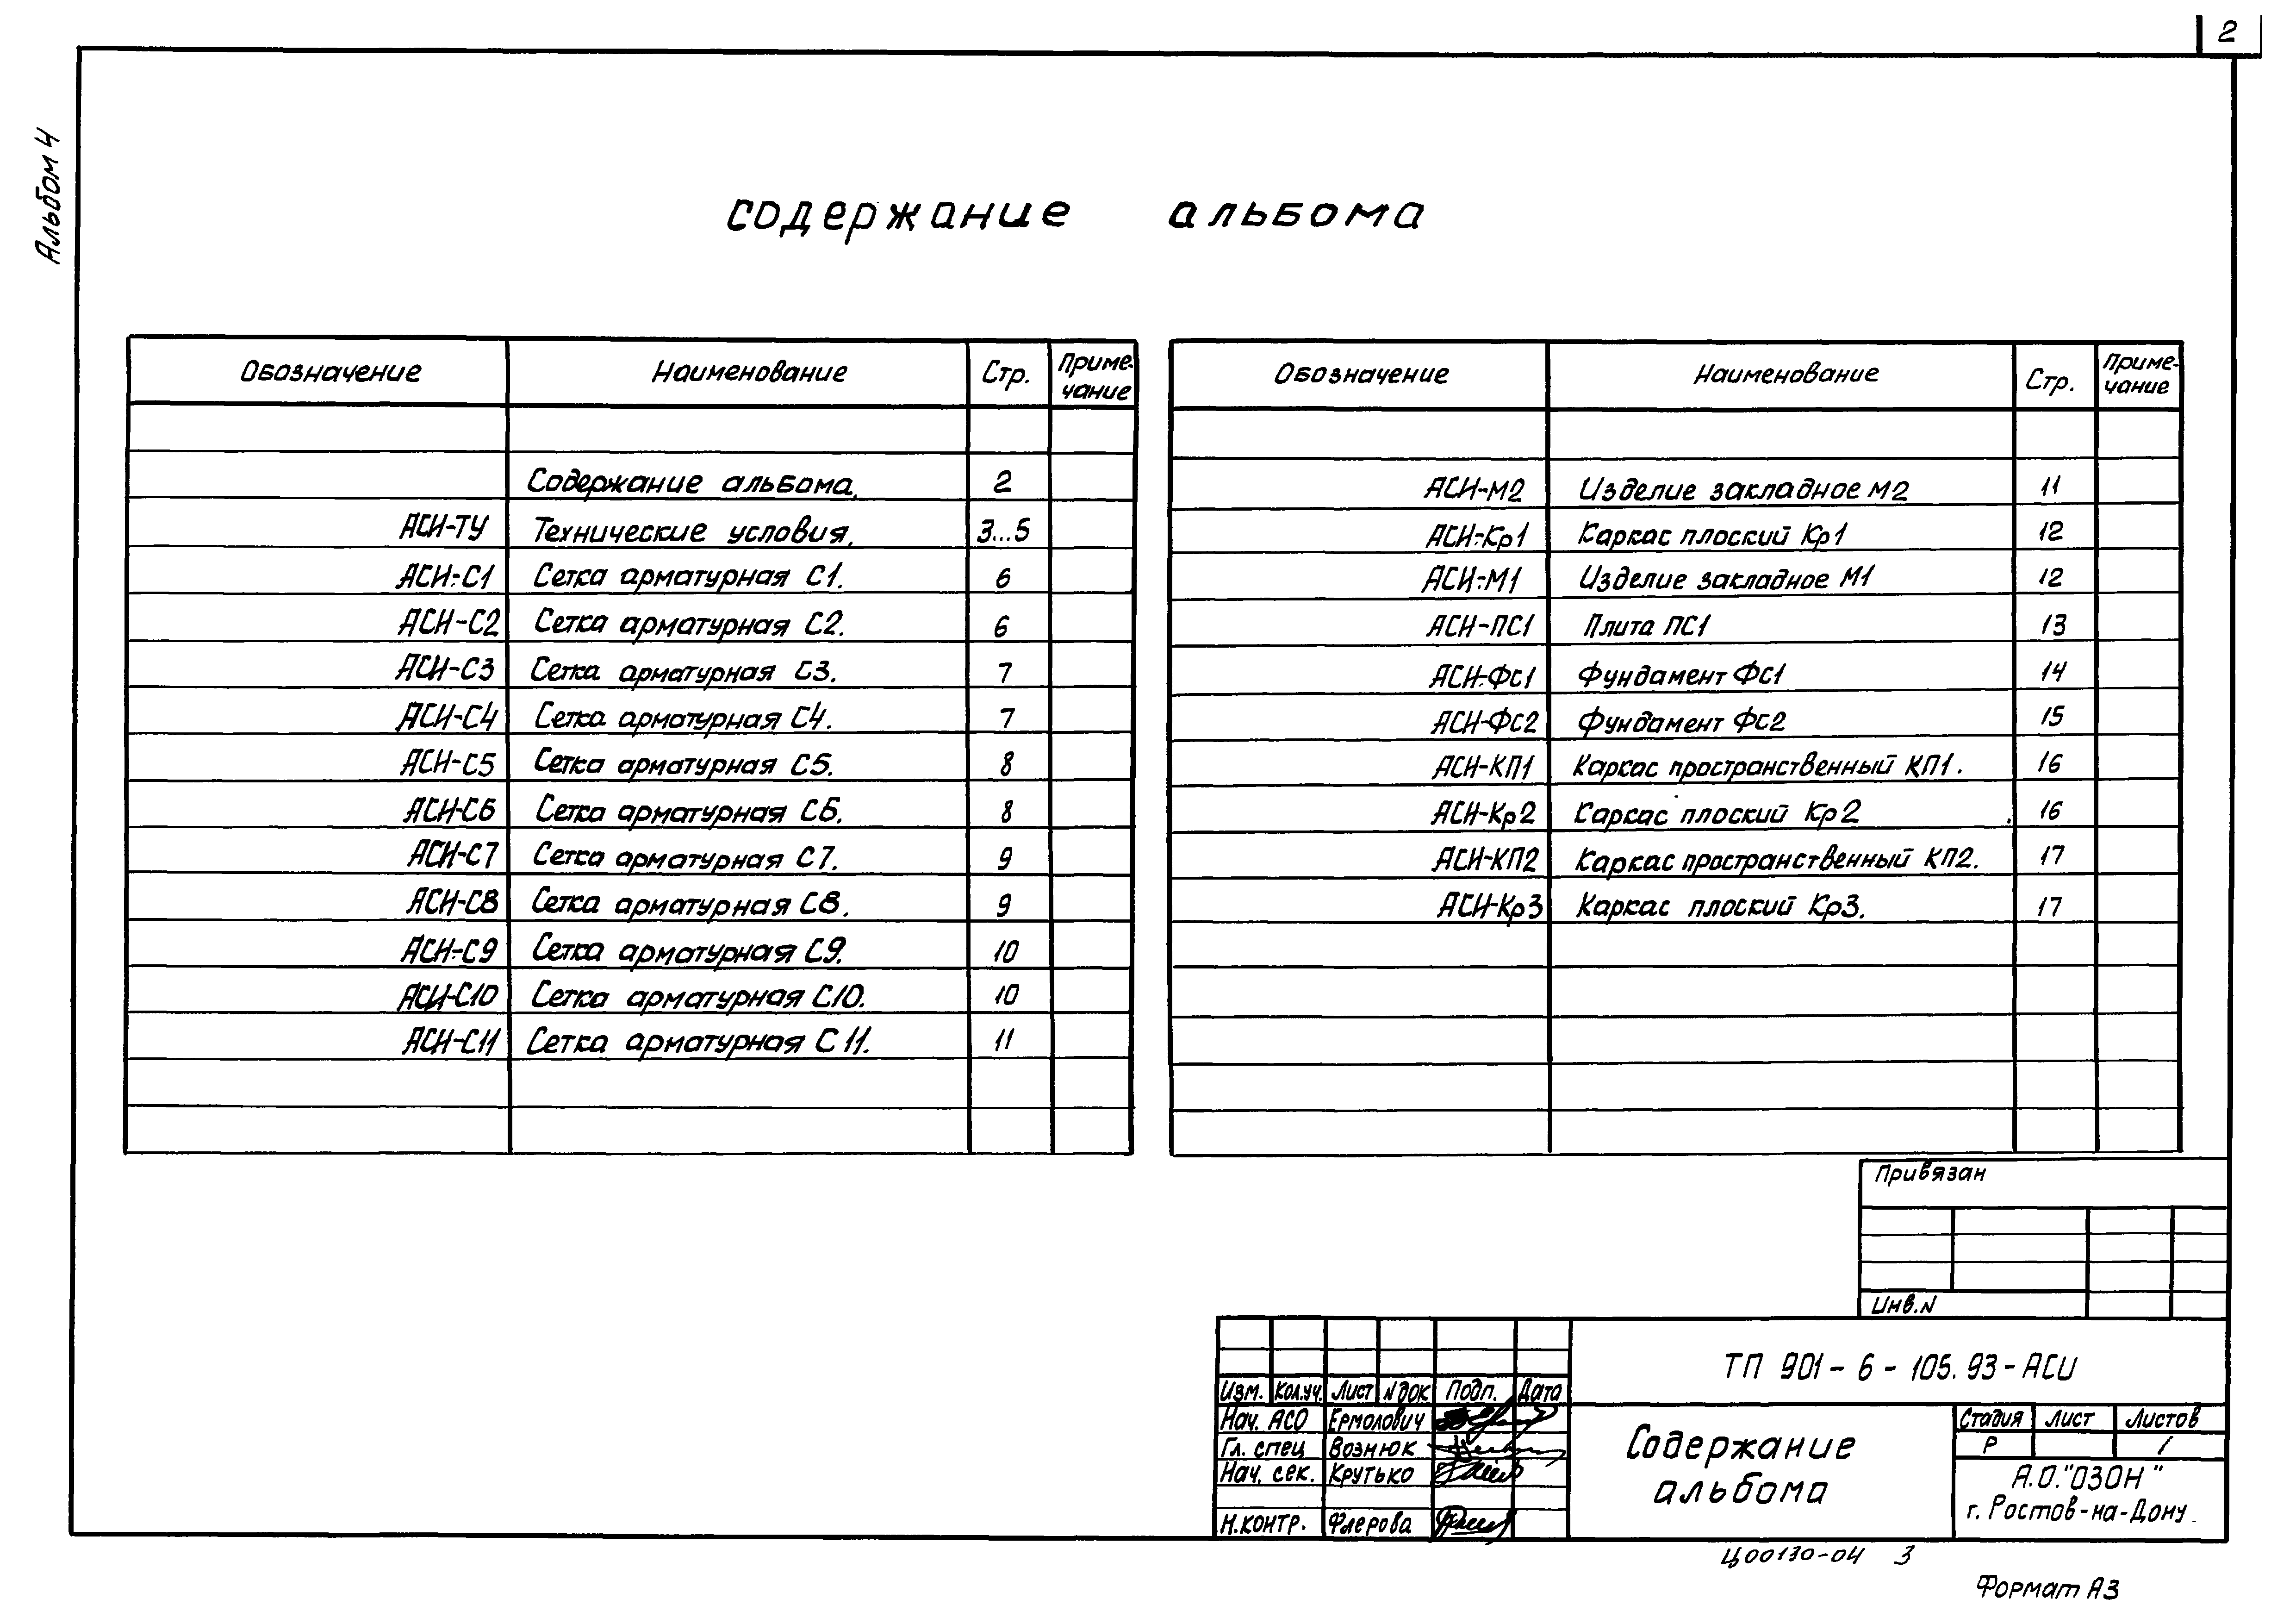 2
Альбом 4
содержание альбома
Обозначение Наименование Стр. Приме-чание
Содержание альбома. 2
АСИ-ТУ Технические условия. 3...5
АСИ-С1 Сетка арматурная С1. 6
АСИ-С2 Сетка арматурная С2. 6
АСИ-С3 Сетка арматурная С3. 7
АСИ-С4 Сетка арматурная С4. 7
АСИ-С5 Сетка арматурная С5. 8
АСИ-С6 Сетка арматурная С6. 8
АСИ-С7 Сетка арматурная С7. 9
АСИ-С8 Сетка арматурная С8. 9
АСИ-С9 Сетка арматурная С9. 10
АСИ-С10 Сетка арматурная С10. 10
АСИ-С11 Сетка арматурная С11. 11
Обозначение Наименование Стр. Приме-чание
АСИ-М2 Изделие закладное М2 11
АСИ-Кр1 Каркас плоский Кр1 12
АСИ-М1 Изделие закладное М1 12
АСИ-ПС1 Плита ПС1 13
АСИ-Фс1 Фундамент Фс1 14
АСИ-Фс2 Фундамент Фс2 15
АСИ-КП1 Каркас пространственный КП1. 16
АСИ-Кр2 Каркас плоский Кр2 16
АСИ-КП2 Каркас пространственный КП2. 17
АСИ-Кр3 Каркас плоский Кр3. 17
Привязан
Инв.N
ТП 901-6-105.93-АСИ
Изм. Кол.уч. Лист N док Подп. Дата
Нач. АСО Ермолович
Гл. спец Вознюк
Нач. сек. Крутько
Н.контр. Флерова
Содержание
альбома
Стадия Лист Листов
Р 1
А.О."ОЗОН"
г. Ростов-на-Дону.
Ц00130-04 3
Формат А3